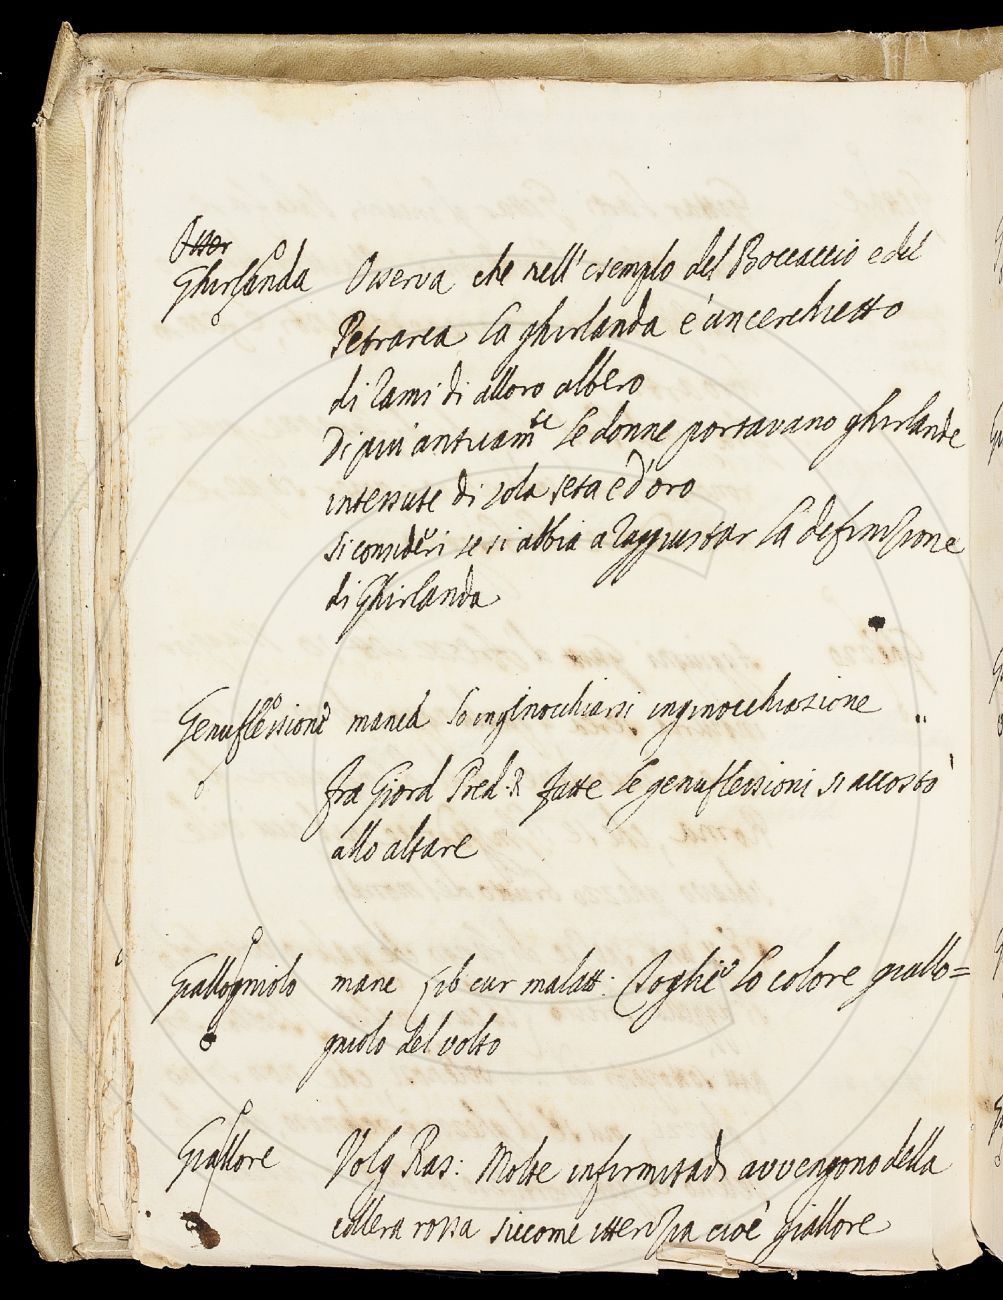 Osser
Ghirlanda Osserva che nell'esempio del Boccaccio e del
Petrarca la ghirlanda e' un cerchietto
di rami di alloro albero
Di piu' anticam.te le donne portavano ghirlande
intessute di sola seta e d'oro
Si consideri se si abbia a raggiustar la definizione
di Ghirlanda
Genuflessione manca lo inginocchiarsi inginocchiazione
fra Giord Pred. R fatte le genuflessioni si accosto'
allo altare
Giallogniolo manc Lib cur malatt: Toghie lo colore giallo=
gniolo del volto
Giallore Volg Ras: Molte infirmitadi avvengono della
collera rossa siccome itterizia cioe' giallore